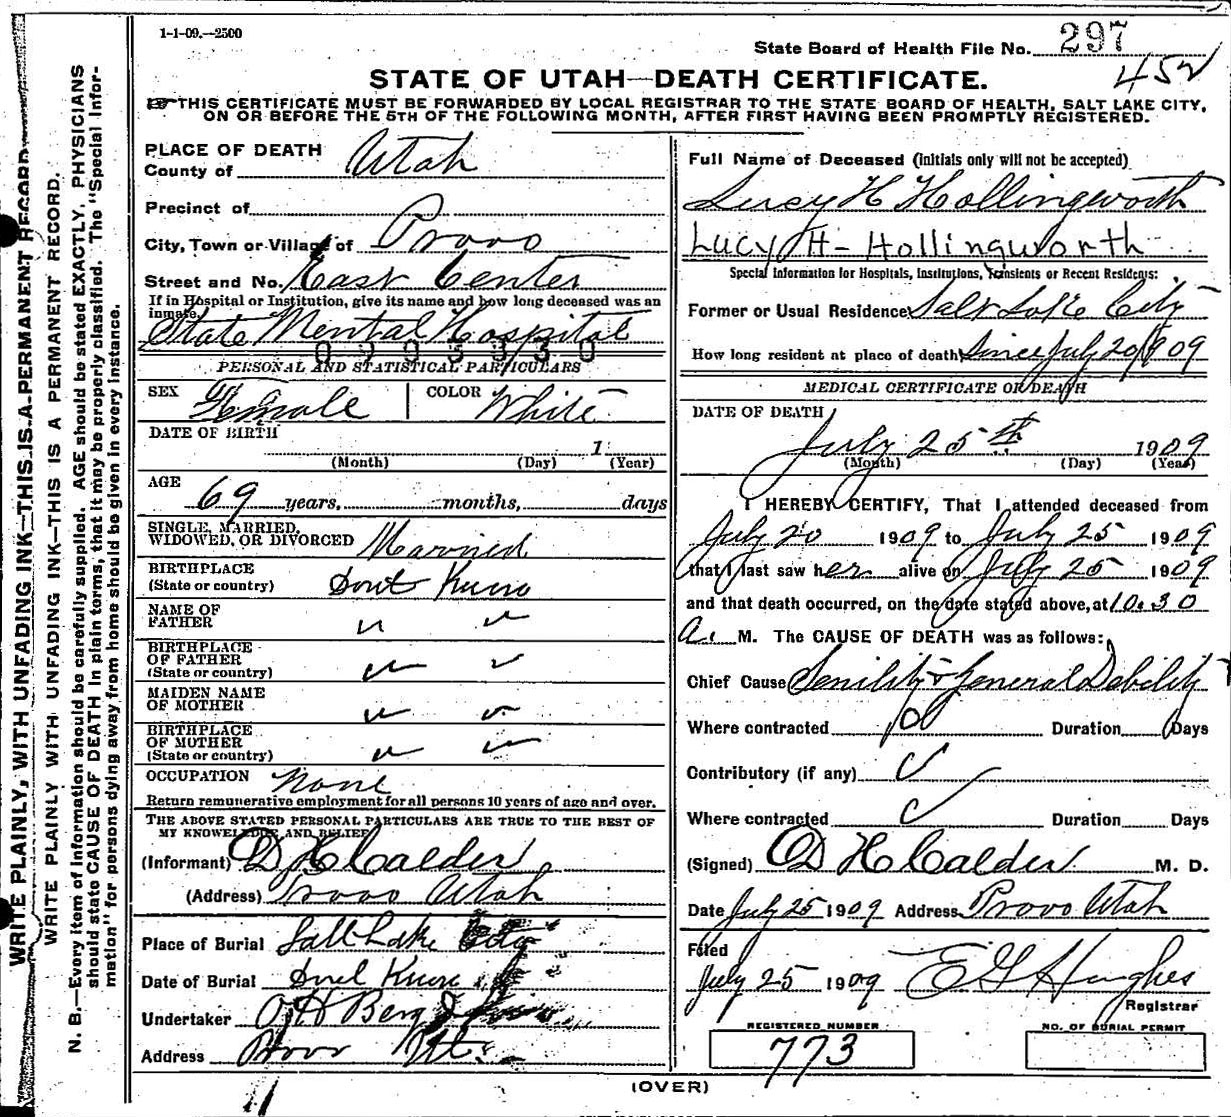 1-1-09.—2500
State Board of Health File No. 297
452
STATE OF UTAH—DEATH CERTIFICATE.
THIS CERTIFICATE MUST BE FORWARDED BY LOCAL REGISTRAR TO THE STATE BOARD OF HEALTH, SALT LAKE CITY,
ON OR BEFORE THE 5TH OF THE FOLLOWING MONTH, AFTER FIRST HAVING BEEN PROMPTLY REGISTERED.
WRITE PLAINLY, WITH UNFADING INK—THIS IS A PERMANENT RECORD
WRITE PLAINLY WITH UNFADING INK—THIS IS A PERMANENT RECORD.
N. B.—Every item of information should be carefully supplied. AGE should be stated EXACTLY, PHYSICIANS
should state CAUSE OF DEATH in plain terms, that it may be properly classified. The "Special Infor-
mation" for persons dying away from home should be given in every instance.
PLACE OF DEATH
County of Utah
Precinct of
City, Town or Village of Provo
Street and No. East Center
If in Hospital or Institution, give its name and how long deceased was an
inmate.
State Mental Hospital
PERSONAL AND STATISTICAL PARTICULARS
SEX Female COLOR White
DATE OF BIRTH 1
(Month) (Day) (Year)
AGE
69 years, months, days
SINGLE, MARRIED,
WIDOWED, OR DIVORCED Married
BIRTHPLACE
(State or country) Dont Know
NAME OF
FATHER " "
BIRTHPLACE
OF FATHER
(State or country) " "
MAIDEN NAME
OF MOTHER " "
BIRTHPLACE
OF MOTHER
(State or country) " "
OCCUPATION None
Return remunerative employment for all persons 10 years of age and over.
THE ABOVE STATED PERSONAL PARTICULARS ARE TRUE TO THE BEST OF
MY KNOWLEDGE AND BELIEF
(Informant) D H Calder
(Address) Provo Utah
Place of Burial Salt Lake City
Date of Burial Dont Know
Undertaker O H Berg &
Address Provo Ut.
Full Name of Deceased (initials only will not be accepted)
Lucy H Hollingworth
Lucy H- Hollingworth
Special Information for Hospitals, Institutions, Transients or Recent Residents:
Former or Usual Residence Salt Lake City
How long resident at place of death Since July 20/ 09
MEDICAL CERTIFICATE OF DEATH
DATE OF DEATH
July 25th 1909
(Month) (Day) (Year)
I HEREBY CERTIFY, That I attended deceased from
July 20 1909 to July 25 1909
that I last saw her alive on July 25 1909
and that death occurred, on the date stated above, at 10.30
A. M. The CAUSE OF DEATH was as follows:
Chief Cause Senility & General Debility
Where contracted Duration Days
Contributory (if any)
Where contracted Duration Days
(Signed) D H Calder M. D.
Date July 25 1909 Address Provo Utah
Filed
July 25 1909 E G Hughes
Registrar
REGISTERED NUMBER
773
NO. OF BURIAL PERMIT
(OVER)
11